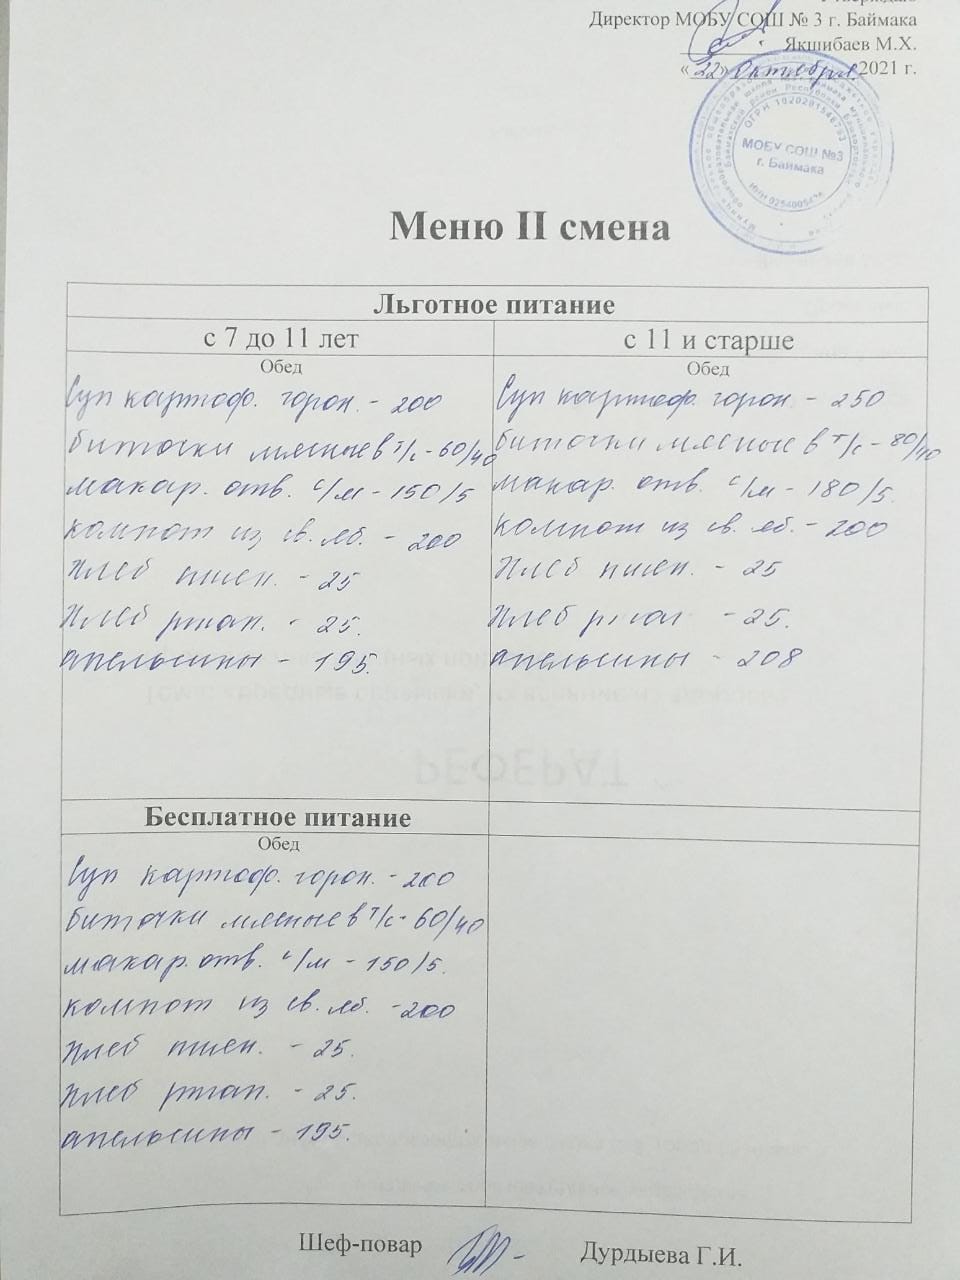 Утверждаю
Директор МОБУ СОШ № 3 г. Баймака
Якшибаев М.Х.
«22» октября 2021 г.
ОГРН 1020201546763
МОБУ СОШ №3
г. Баймака
Меню II смена
Льготное питание
с 7 до 11 лет
с 11 и старше
Обед
Суп картоф. горох. - 200
биточки мясные в т/с - 60/40
макар. отв. с/м - 150/5
компот из св. яб. - 200
Хлеб пшен. - 25
Хлеб ржан. - 25.
апельсины - 195.
Обед
Суп картоф. горох - 250
биточки мясные в т/с - 80/40
макар. отв. с/м - 180/5.
компот из св. яб. - 200
Хлеб пшен. - 25
Хлеб ржан - 25.
апельсины - 208
Бесплатное питание
Обед
Суп картоф. горох. - 200
биточки мясные в т/с - 60/40
макар. отв. с/м - 150/5.
компот из св. яб. - 200
Хлеб пшен. - 25.
Хлеб ржан. - 25.
апельсины - 195.
РЕФЕРАТ
Шеф-повар
Дурдыева Г.И.